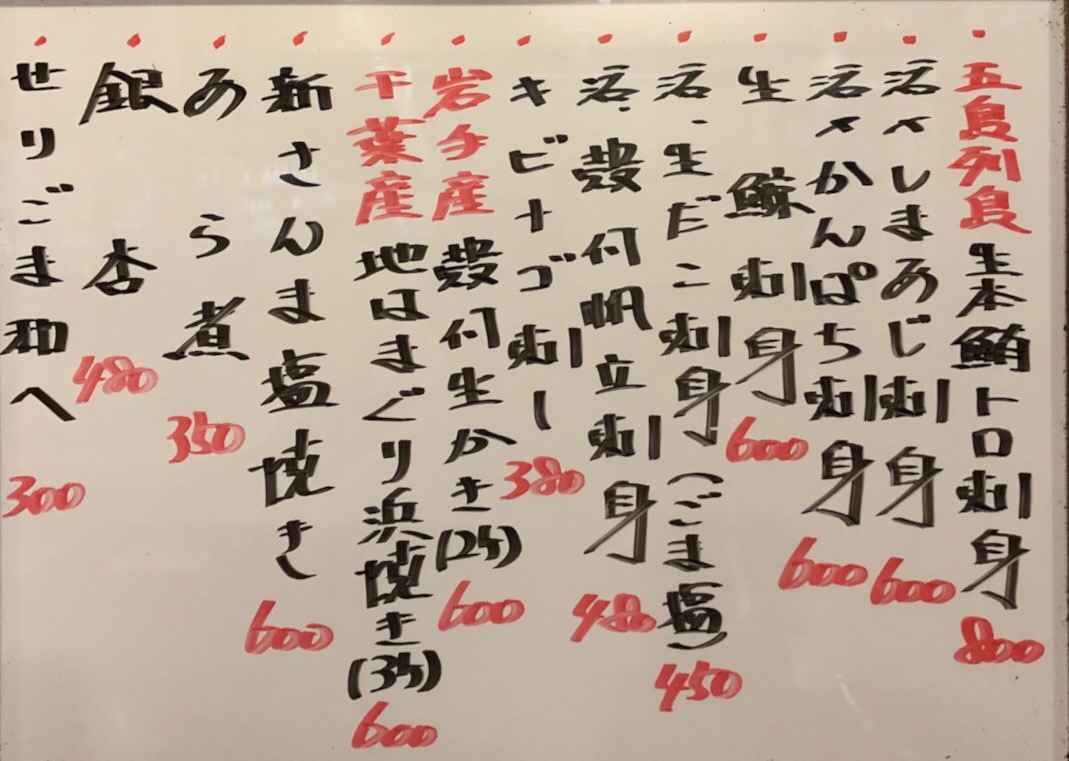 五島列島 生本鮪トロ刺身 800
活〆しまあじ刺身 600
活〆かんぱち刺身 600
生鯨刺身 600
活・生だこ刺身(ごま塩) 450
活・殻付帆立刺身 480
キビナゴ刺し 380
岩手産 殻付生かき(2ケ) 600
千葉産 地はまぐり浜焼き(3ケ) 600
新さんま塩焼き 600
あら煮 350
銀杏 480
せりごま和へ 300